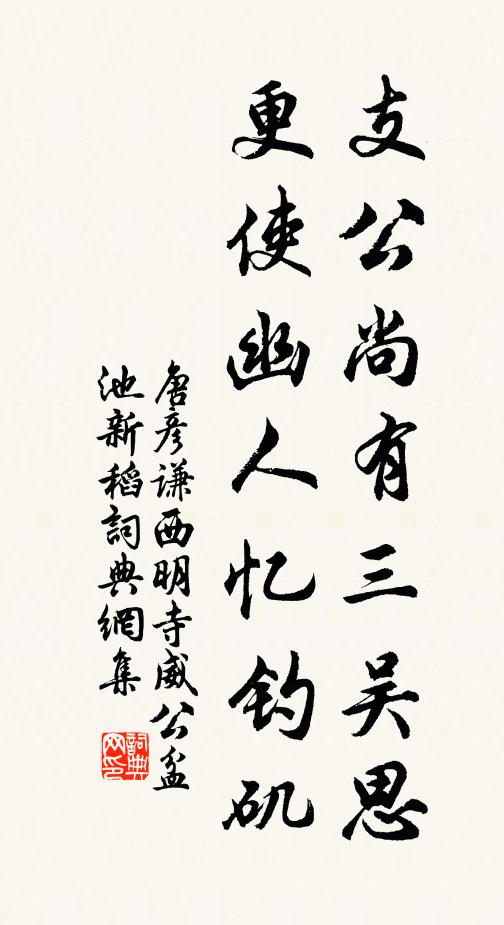 支公尚有三吴思
更使幽人忆钓矶
唐彦谦西明寺威公盆
池新稻詞典網集
詞典网印